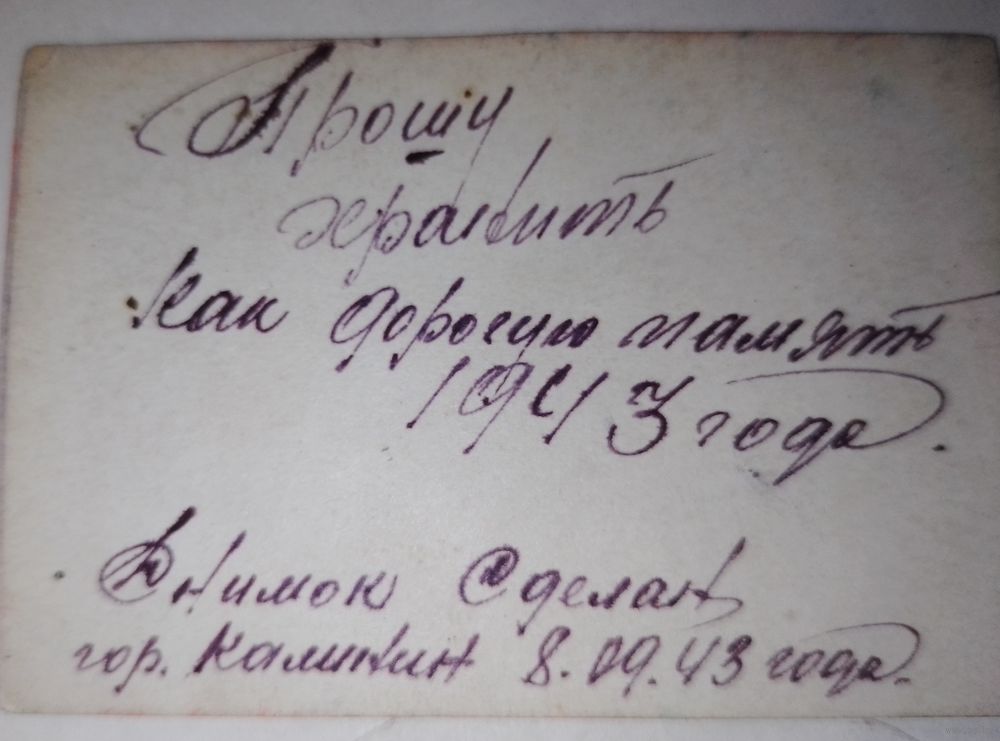 Прошу
хранить
как дорогую память
1943 года.
Снимок Сделан
гор. Калинин 8.09.43 года.